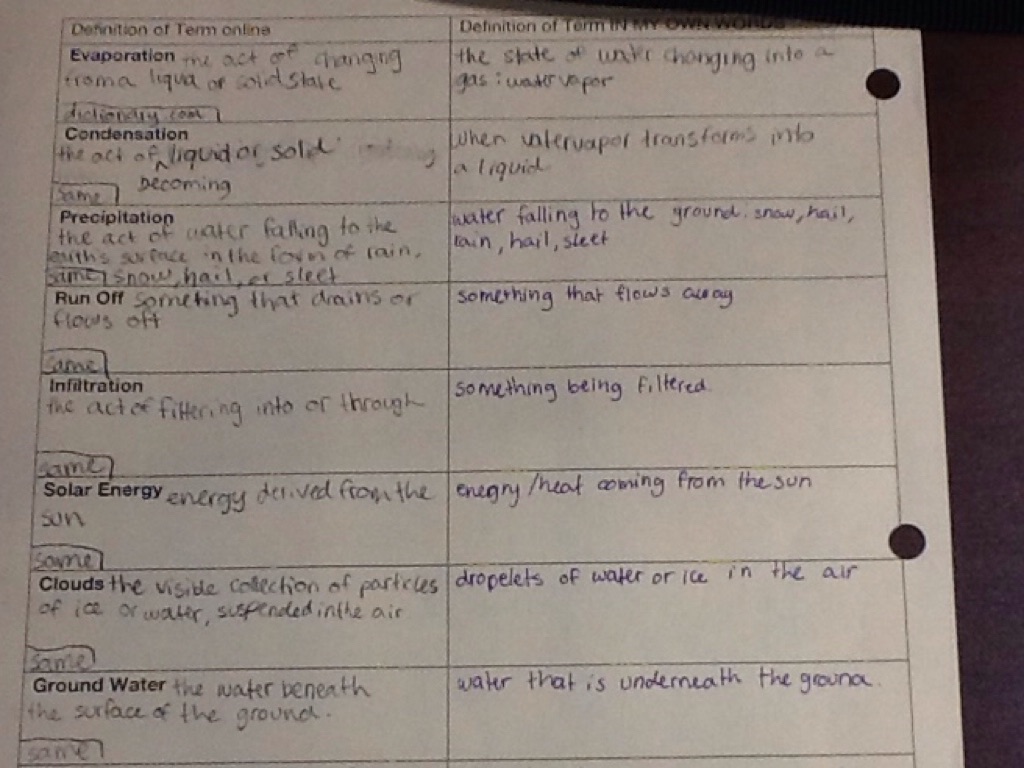 Definition of Term online
Definition of Term IN MY OWN WORDS
Evaporation the act of changing
from a liqua or solid state
dictionary.com
the state of water changing into a
gas: water vapor
Condensation
the act of liquid or solid
becoming
same
when watervapor transforms into
a liquid
Precipitation
the act of water falling to the
earths surface in the form of rain,
same snow, hail, or sleet
water falling to the ground: snow, hail,
rain, hail, sleet
Run Off someting that drains or
flows off
same
something that flows away
Infiltration
the act of filtering into or through
same
something being filtered.
Solar Energy energy derived from the
sun
same
enegry/heat coming from the sun
Clouds the visible collection of particles
of ice or water, suspended in the air
same
dropelets of water or ice in the air
Ground Water the water beneath
the surface of the ground.
same
water that is underneath the ground.